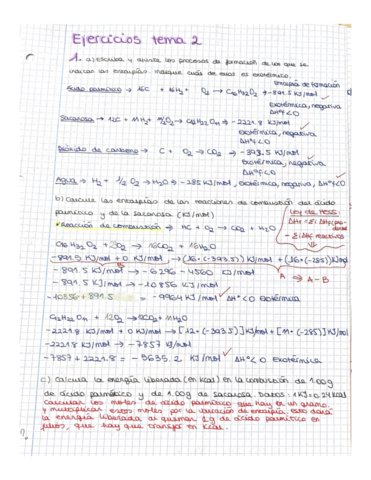 Ejercicios tema 2
1. a) Escriba y ajuste los procesos de formación de los que se
indican las entalpías. Indique cuál de ellos es exotérmico.
entalpía de formación
Ácido palmítico → 16C + 16H₂ + O₂ → C₁₆H₃₂O₂ → -891.5 KJ/mol
Exotérmica, negativa
ΔH°<0
Sacarosa → 12C + 11H₂ + 11/2 O₂ → C₁₂H₂₂O₁₁ → -2221.8 KJ/mol
Exotérmica, negativa
ΔH°<0
Dióxido de carbono → C + O₂ → CO₂ → -393.5 KJ/mol
Exotérmica, negativa
ΔH°<0
Agua → H₂ + 1/2 O₂ → H₂O → -285 KJ/mol, exotérmica, negativa, ΔH°<0
b) Calcule las entalpías de las reacciones de combustión del ácido
palmítico y de la sacarosa (KJ/mol)
Ley de HESS:
* Reacción de combustión → HC + O₂ → CO₂ + H₂O
C₁₆H₃₂O₂ + 23O₂ → 16CO₂ + 16H₂O
-891.5 KJ/mol + 0 KJ/mol → [16·(-393.5)]KJ/mol + [16·(-285)]KJ/mol
B
-891.5 KJ/mol → -6296 - 4560 KJ/mol
A → A - B
-891.5 KJ/mol → -10856 KJ/mol
-10856 + 891.5 = -9964 KJ/mol ΔH°<0 Exotérmica
C₁₂H₂₂O₁₁ + 12O₂ → 12CO₂ + 11H₂O
-2221.8 KJ/mol + 0 KJ/mol → [12·(-393.5)]KJ/mol + [11·(-285)]KJ/mol
-2221.8 KJ/mol → -7857 KJ/mol
-7857 + 2221.8 = -5635.2 KJ/mol ΔH°<0 Exotérmica
c) Calcula la energía liberada (en kcal) en la combustión de 1.00g
de ácido palmítico y de 1.00g de sacarosa. Datos: 1KJ=0.24Kcal
Calcular los moles de ácido palmítico que hay en un gramo.
y multiplicar estos moles por la variación de entalpía. Esto dará
la energía liberada al quemar 1g de ácido palmítico en
julios, que hay que transf en Kcal.